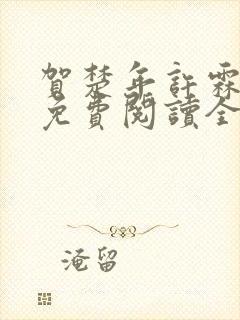 賀楚年許霖
免費閱讀全
淹留